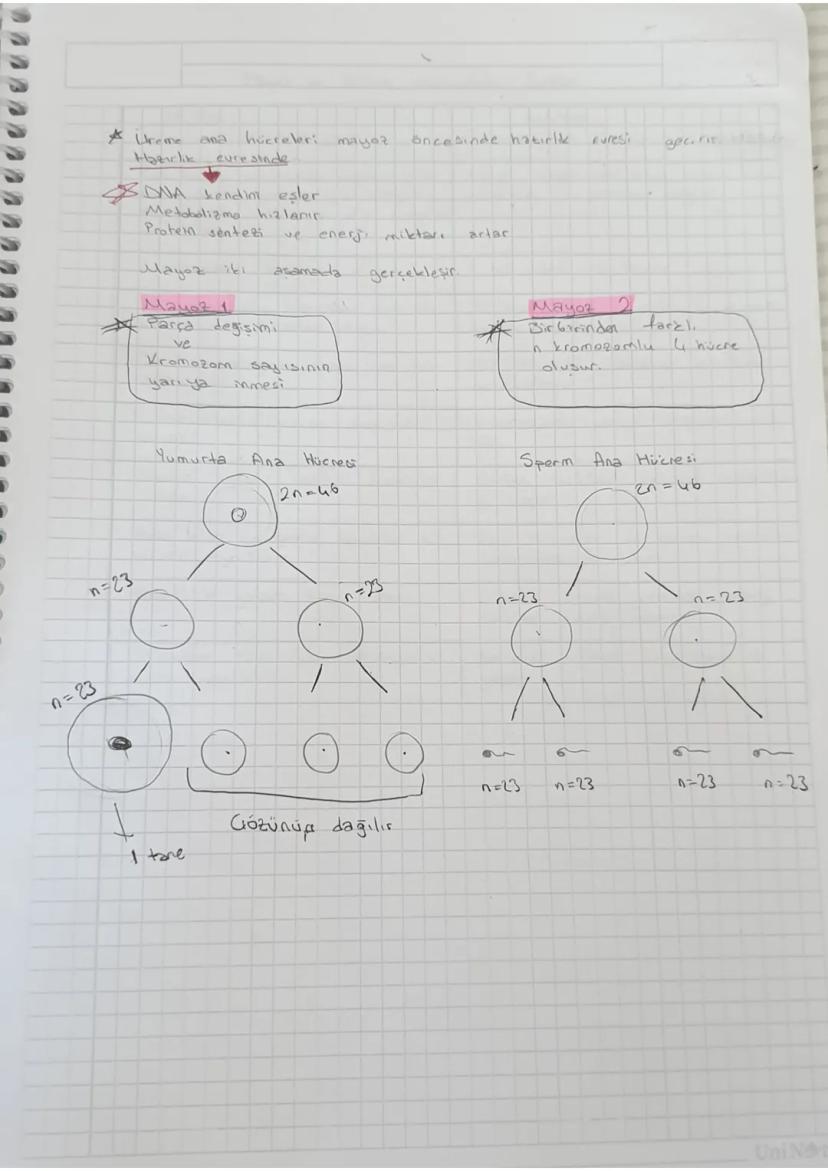 * Üreme ana hücreleri mayoz öncesinde hazırlık evresi geçirir.
Hazırlık evresinde
DNA kendini eşler
Metabolizma hızlanır
Protein sentezi ve enerji miktarı artar
Mayoz iki aşamada gerçekleşir.
Mayoz 1
Parça değişimi
ve
Kromozom sayısının
yarıya inmesi
Mayoz 2
Birbirinden farklı
n kromozomlu 4 hücre
oluşur.
Yumurta Ana Hücresi
2n=46
n=23
n=23
n=23
Çözünüp dağılır
1 tane
Sperm Ana Hücresi
2n=46
n=23
n=23
n=23
n=23
n=23
n=23